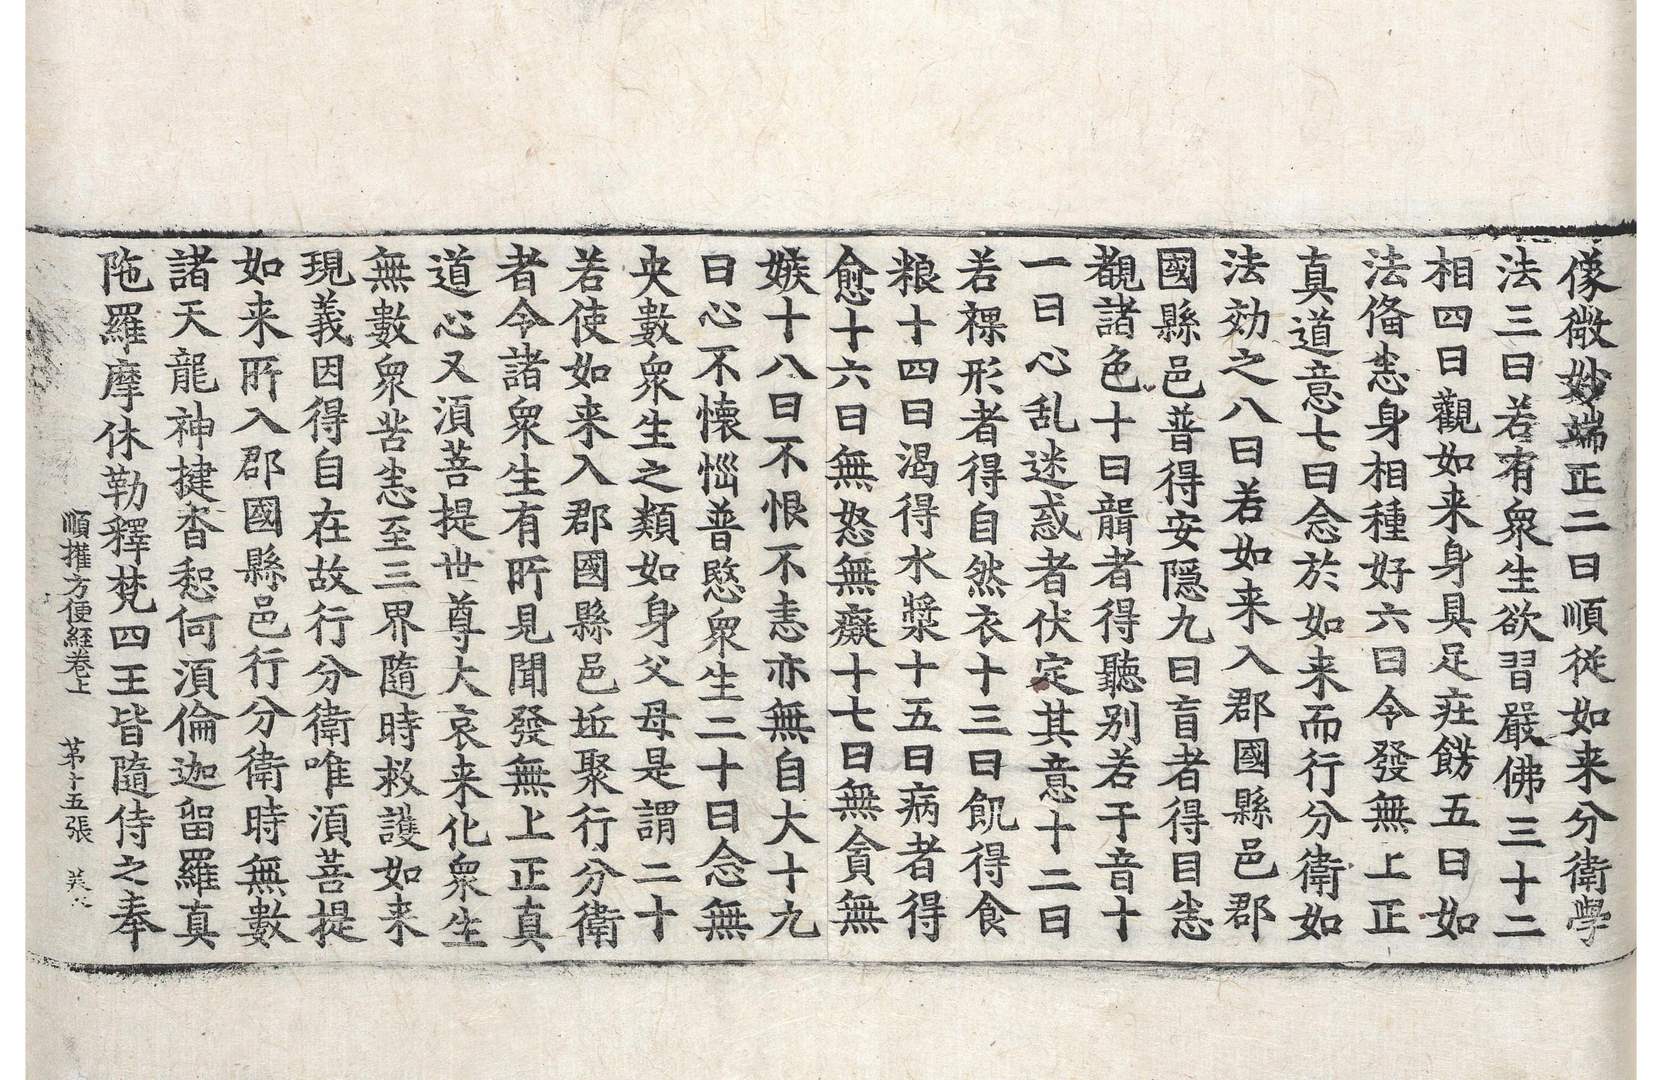 像微妙端正二曰順從如来分衛學
法三曰若有衆生欲習嚴佛三十二
相四曰觀如来身具足莊餝五曰如
法俻恚身相種好六曰令發無上正
真道意七曰念於如来而行分衛如
法効之八曰若如来入郡國縣邑郡
國縣邑普得安隱九曰盲者得目恚
覩諸色十曰聾者得聽别若干音十
一曰心乱迷惑者伏定其意十二曰
若裸形者得自然衣十三曰飢得食
粮十四曰渴得水漿十五曰病者得
愈十六曰無怒無癡十七曰無貪無
嫉十八曰不恨不恚亦無自大十九
曰心不懐惱普愍衆生二十曰念無
央數衆生之類如身父母是謂二十
若使如来入郡國縣邑丘聚行分衛
者令諸衆生有所見聞發無上正真
道心又湏菩提世尊大哀来化衆生
無數衆苦恚至三界隨時救護如来
現義因得自在故行分衛唯湏菩提
如来所入郡國縣邑行分衛時無數
諸天龍神揵沓惒何湏倫迦留羅真
陁羅摩休勒釋梵四王皆隨侍之奉
順權方便経卷上 第十五張